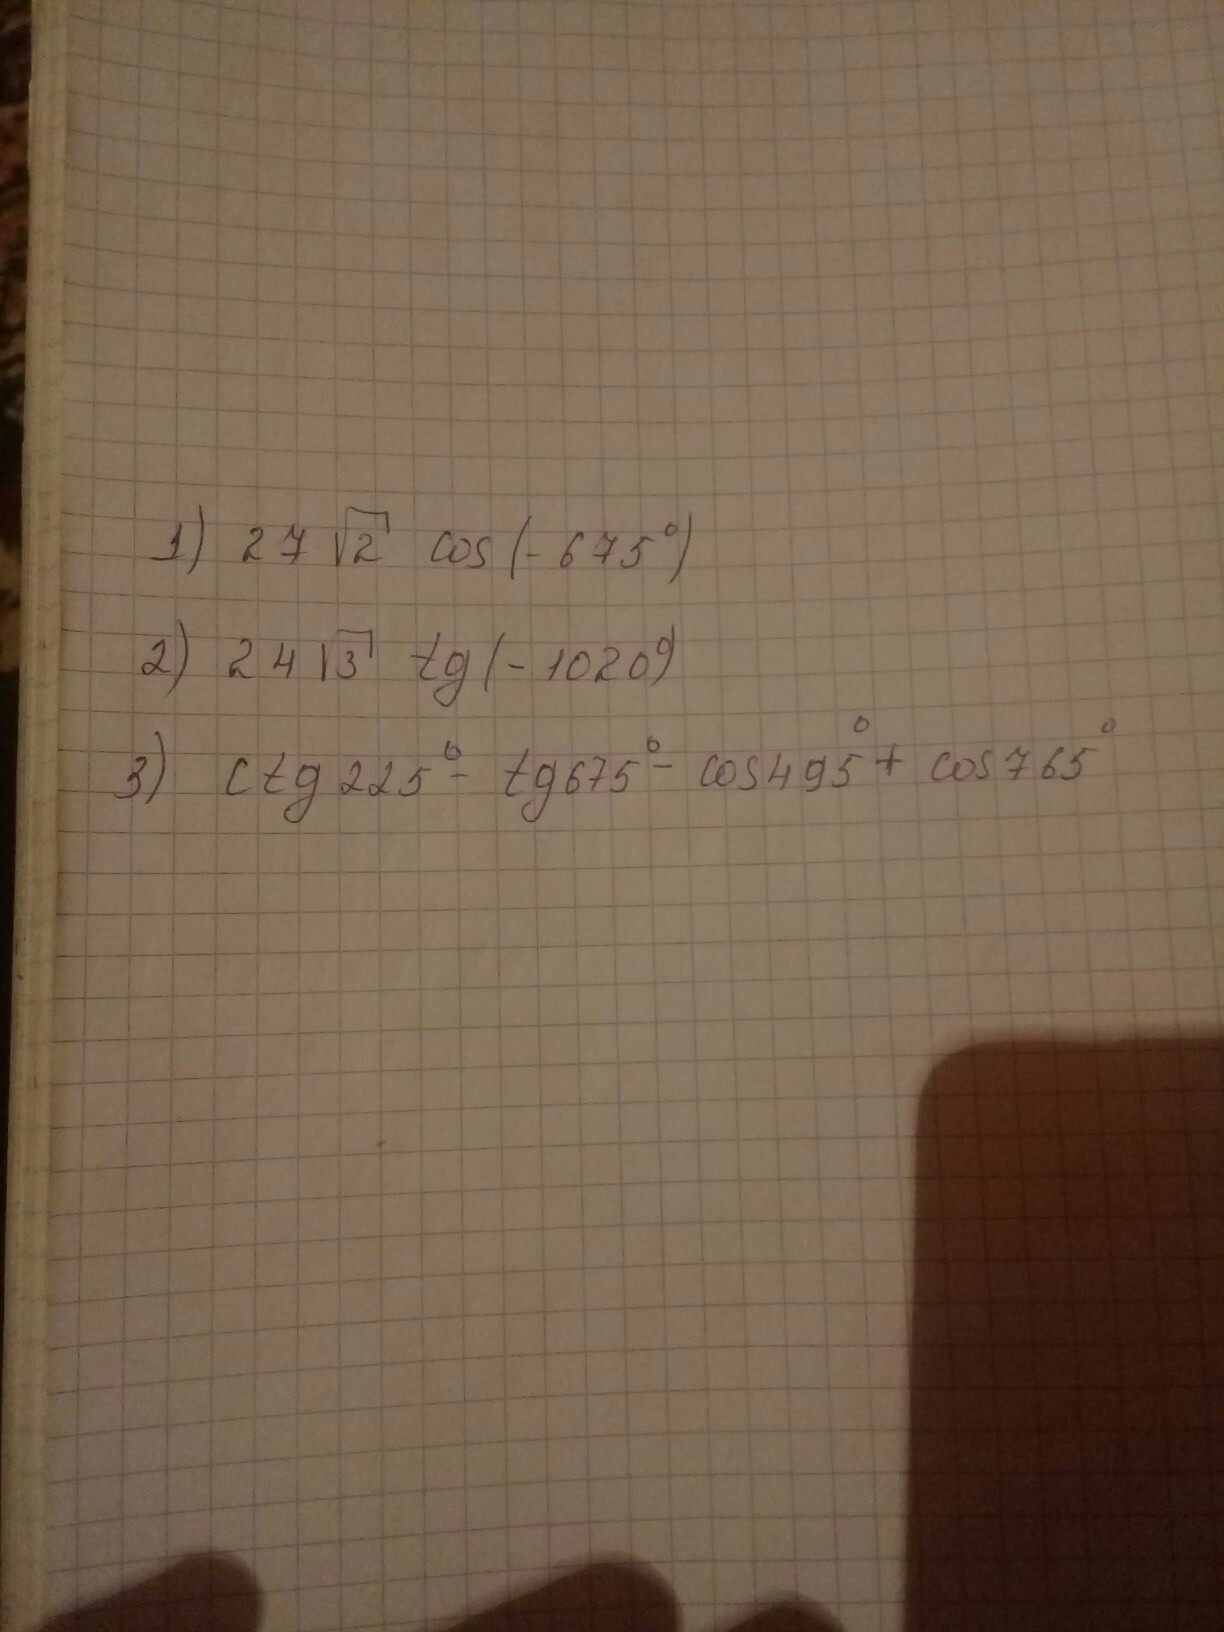 1) 27√2 cos(-675°)
2) 24√3 tg(-1020°)
3) ctg225° - tg675° - cos495° + cos765°